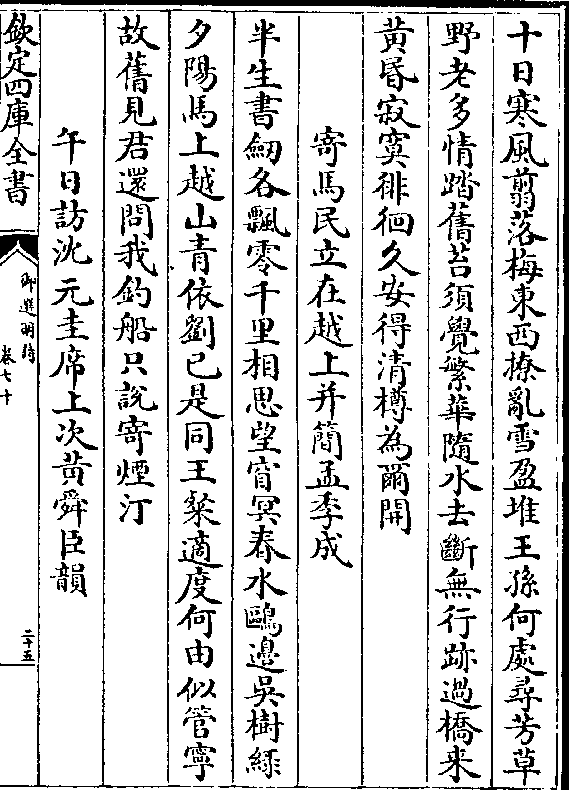 十日寒風翦落梅東西撩亂雪盈堆王孫何處尋芳草
野老多情踏舊苔須覺繁華隨水去斷無行跡過橋来
黄昏寂寞徘徊久安得清樽為爾開
寄馬民立在越上并簡孟季成
半生書劒各飄零千里相思望窅冥春水鷗邊吳樹緑
夕陽馬上越山青依劉已是同王粲適度何由似管寧
故舊見君還問我釣船只説寄煙汀
午日訪沈元圭席上次黄舜臣韻
欽定四庫全書
御選明詩
卷七十
二十五